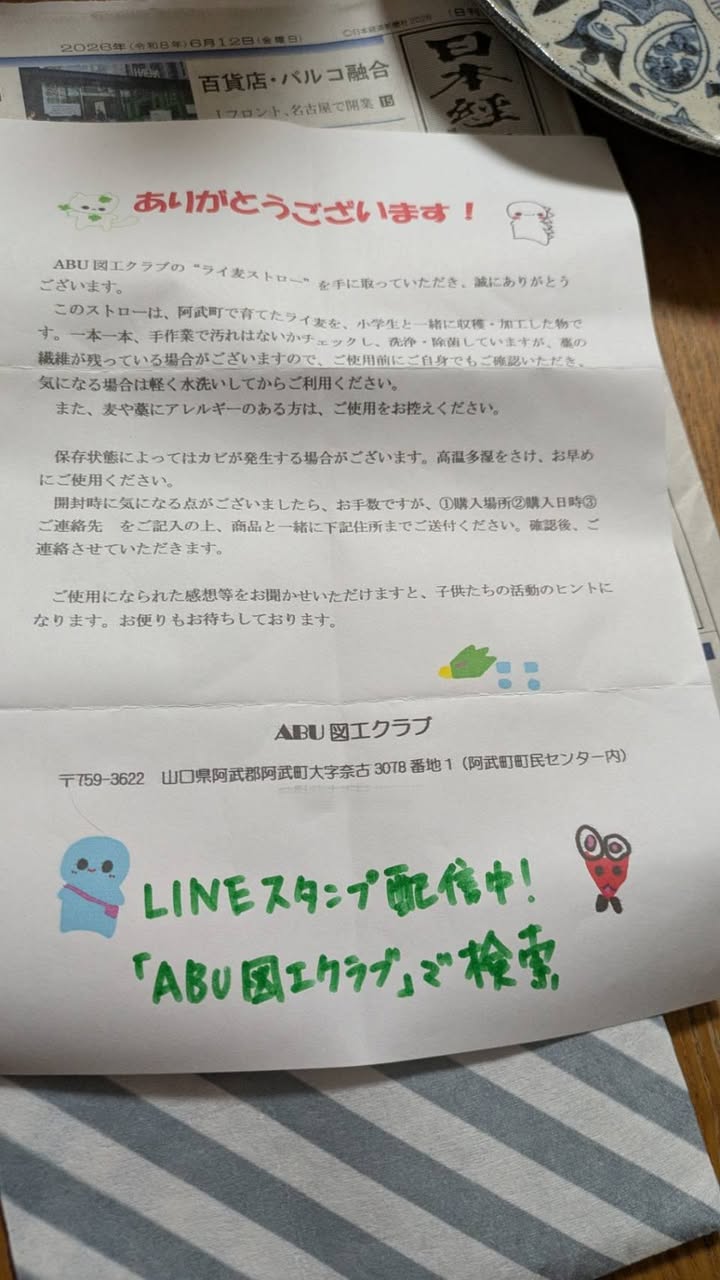 2026年(令和8年)6月12日(金曜日)
©日本経済新聞社2026
(日刊)
百貨店・パルコ融合
Jフロント、名古屋で開業 15
日本経
ありがとうございます!
ABU図工クラブの“ライ麦ストロー”を手に取っていただき、誠にありがとう
ございます。
このストローは、阿武町で育てたライ麦を、小学生と一緒に収穫・加工した物で
す。一本一本、手作業で汚れはないかチェックし、洗浄・除菌していますが、藁の
繊維が残っている場合がございますので、ご使用前にご自身でもご確認いただき、
気になる場合は軽く水洗いしてからご利用ください。
また、麦や藁にアレルギーのある方は、ご使用をお控えください。
保存状態によってはカビが発生する場合がございます。高温多湿をさけ、お早め
にご使用ください。
開封時に気になる点がございましたら、お手数ですが、①購入場所②購入日時③
ご連絡先 をご記入の上、商品と一緒に下記住所までご送付ください。確認後、ご
連絡させていただきます。
ご使用になられた感想等をお聞かせいただけますと、子供たちの活動のヒントに
なります。お便りもお待ちしております。
ABU図工クラブ
〒759-3622 山口県阿武郡阿武町大字奈古3078番地1(阿武町町民センター内)
LINEスタンプ配信中!
「ABU図工クラブ」で検索